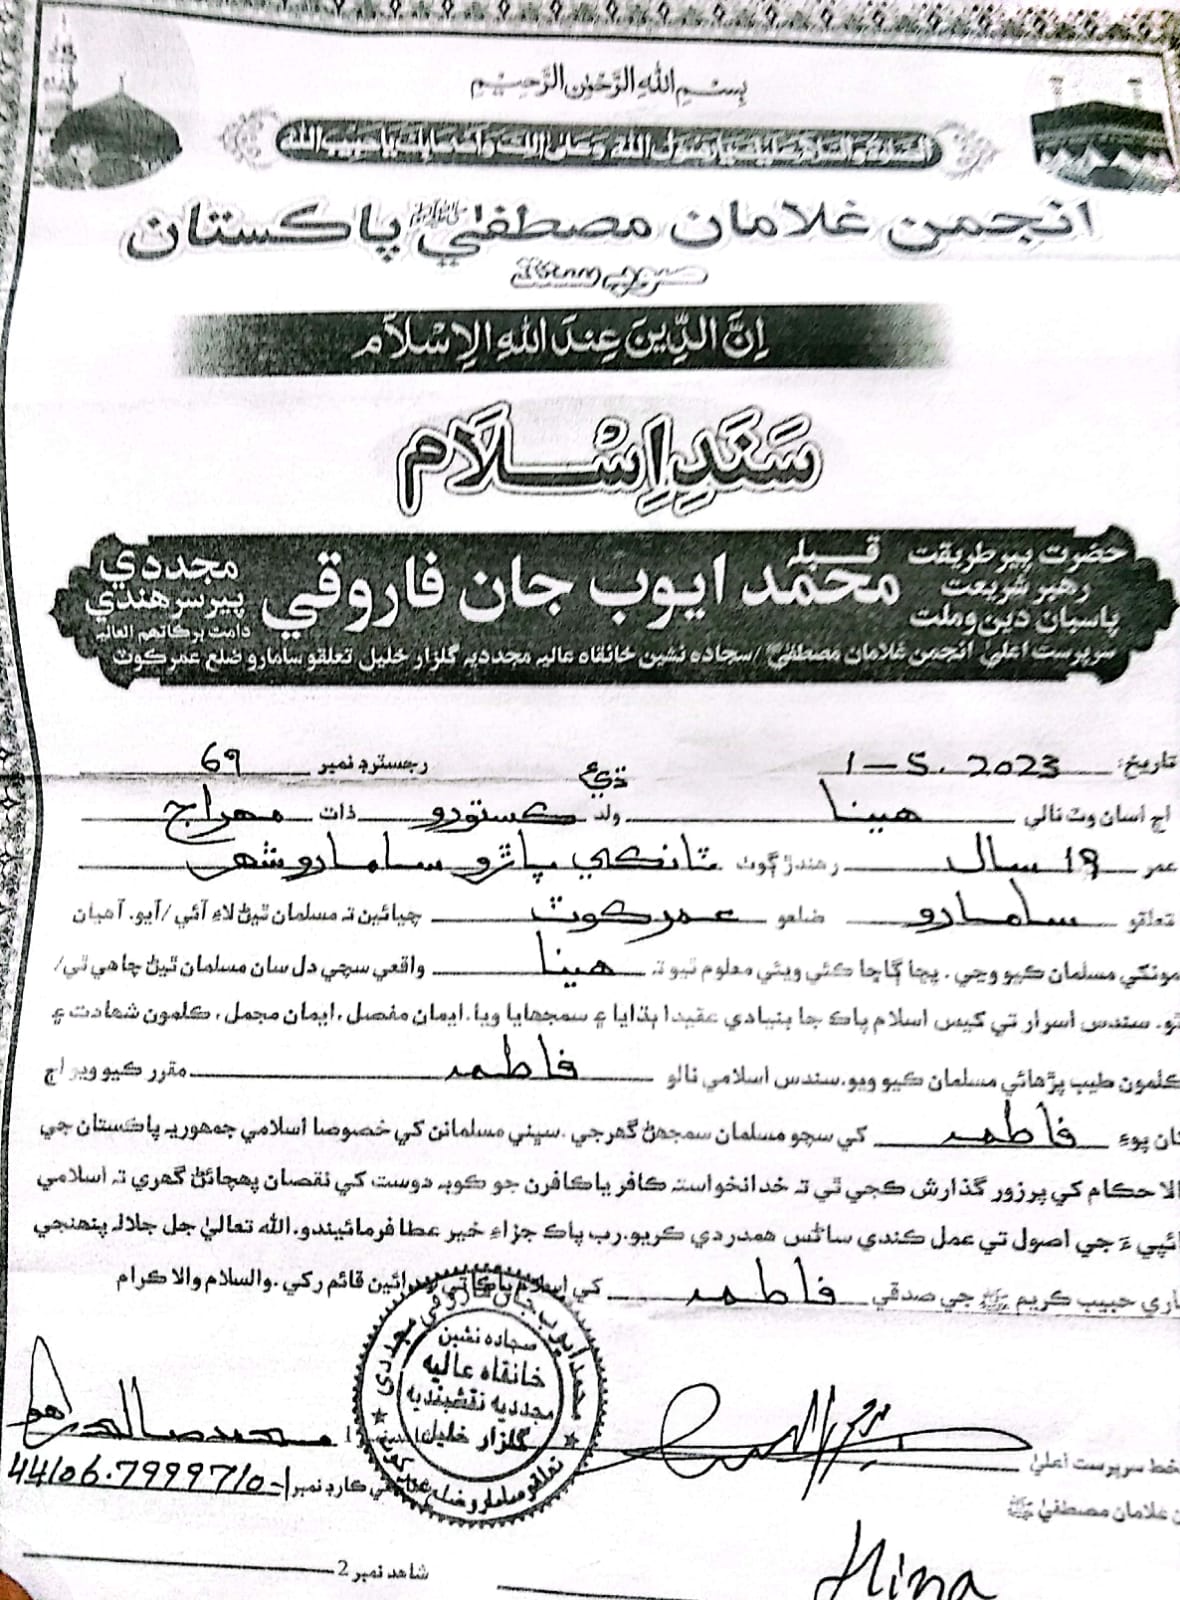 بِسْمِ اللهِ الرَّحْمٰنِ الرَّحِيْمِ
الصلوٰة والسلام عليك يا رسول الله وعلىٰ اٰلك واصحابك يا حبيب الله
انجمن غلامان مصطفيٰ ﷺ پاڪستان
صوبه سنڌ
اِنَّ الدِّيْنَ عِنْدَ اللهِ الْاِسْلَام
سَنَدِ اِسْلَام
حضرت پير طريقت رهبر شريعت پاسبان دين وملت
قبله محمد ايوب جان فاروقي
مجددي پير سرهندي دامت برڪاتهم العاليه
سرپرست اعليٰ انجمن غلامان مصطفيٰ ﷺ /سجاده نشين خانقاه عاليه مجدديه گلزار خليل تعلقو سامارو ضلع عمرڪوٽ
تاريخ: 1-5.2023 رجسٽرڊ نمبر 69
اڄ اسان وٽ نالي هينا ولد ڌيءَ ڪستورو ذات مهراج
عمر 19 سال رهندڙ ڳوٺ ٽانڪي پاڙو سامارو شهر
تعلقو سامارو ضلعو عمرڪوٽ چيائين ته مسلمان ٿيڻ لاءِ آئي /آيو. آهيان
مونکي مسلمان ڪيو وڃي. پڇا ڳاڇا ڪئي ويئي معلوم ٿيو ته هينا واقعي سچي دل سان مسلمان ٿيڻ چاهي ٿي/
ٿو. سندس اسرار تي کيس اسلام پاڪ جا بنيادي عقيدا ٻڌايا ۽ سمجهايا ويا. ايمان مفصل، ايمان مجمل، ڪلمون شهادت ۽
ڪلمون طيب پڙهائي مسلمان ڪيو ويو. سندس اسلامي نالو فاطمه مقرر ڪيو ويو اڄ
کان پوءِ فاطمه کي سچو مسلمان سمجهڻ گهرجي. سڀني مسلمانن کي خصوصا اسلامي جمهوريه پاڪستان جي
والا حڪام کي پرزور گذارش ڪجي ٿي ته خدانخواسته ڪافر يا ڪافرن جو ڪوبه دوست کي نقصان پهچائڻ گهري ته اسلامي
ڀائپيءَ جي اصول تي عمل ڪندي ساڻس همدردي ڪريو. رب پاڪ جزاءِ خير عطا فرمائيندو. الله تعاليٰ جل جلاله پنهنجي
حبيب ڪريم ﷺ جي صدقي فاطمه کي اسلام پاڪ تي قائم رکي. والسلام والا ڪرام
محمد ايوب جان فاروقي مجددي
سجاده نشين
خانقاه عاليه
مجدديه نقشبنديه
گلزار خليل
تعلقو سامارو ضلع عمرڪوٽ
سرپرست اعليٰ
غلامان مصطفيٰ ﷺ
محمد صالح
ڪارڊ نمبر 44106.7999710-1
شاهد نمبر 2
Hina